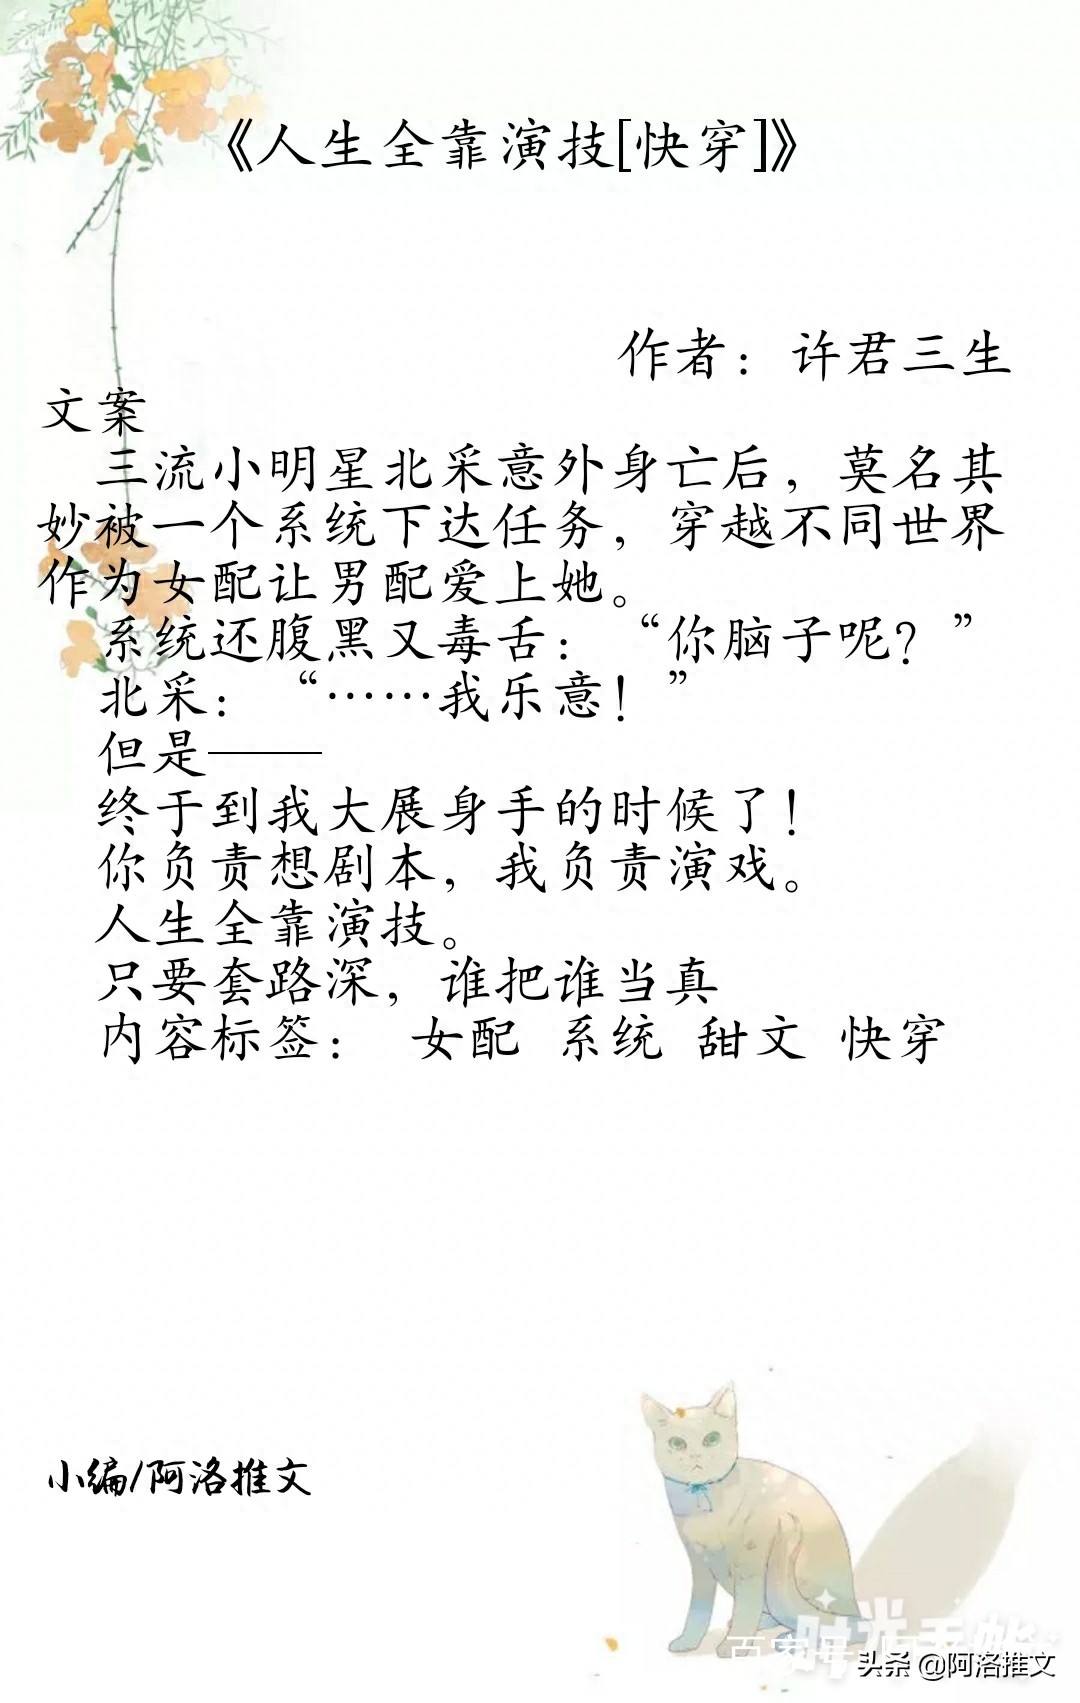 《人生全靠演技[快穿]》
作者：许君三生
文案
三流小明星北采意外身亡后，莫名其
妙被一个系统下达任务，穿越不同世界
作为女配让男配爱上她。
系统还腹黑又毒舌：“你脑子呢？”
北采：“……我乐意！”
但是——
终于到我大展身手的时候了！
你负责想剧本，我负责演戏。
人生全靠演技。
只要套路深，谁把谁当真
内容标签： 女配 系统 甜文 快穿
小编/阿洛推文
时光手帐
百家号
头条 @阿洛推文